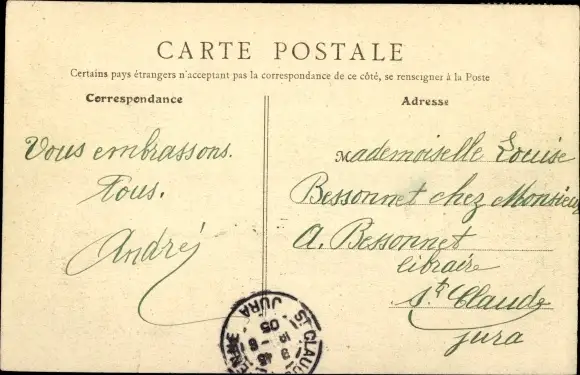 CARTE POSTALE
Certains pays étrangers n'acceptant pas la correspondance de ce côté, se renseigner à la Poste
Correspondance
Adresse
Vous embrassons.
Tous.
André
Mademoiselle Louise
Bessonnet chez Monsieur
A. Bessonnet
libraire
St Claude
Jura
ST CLAUDE
JURA
05